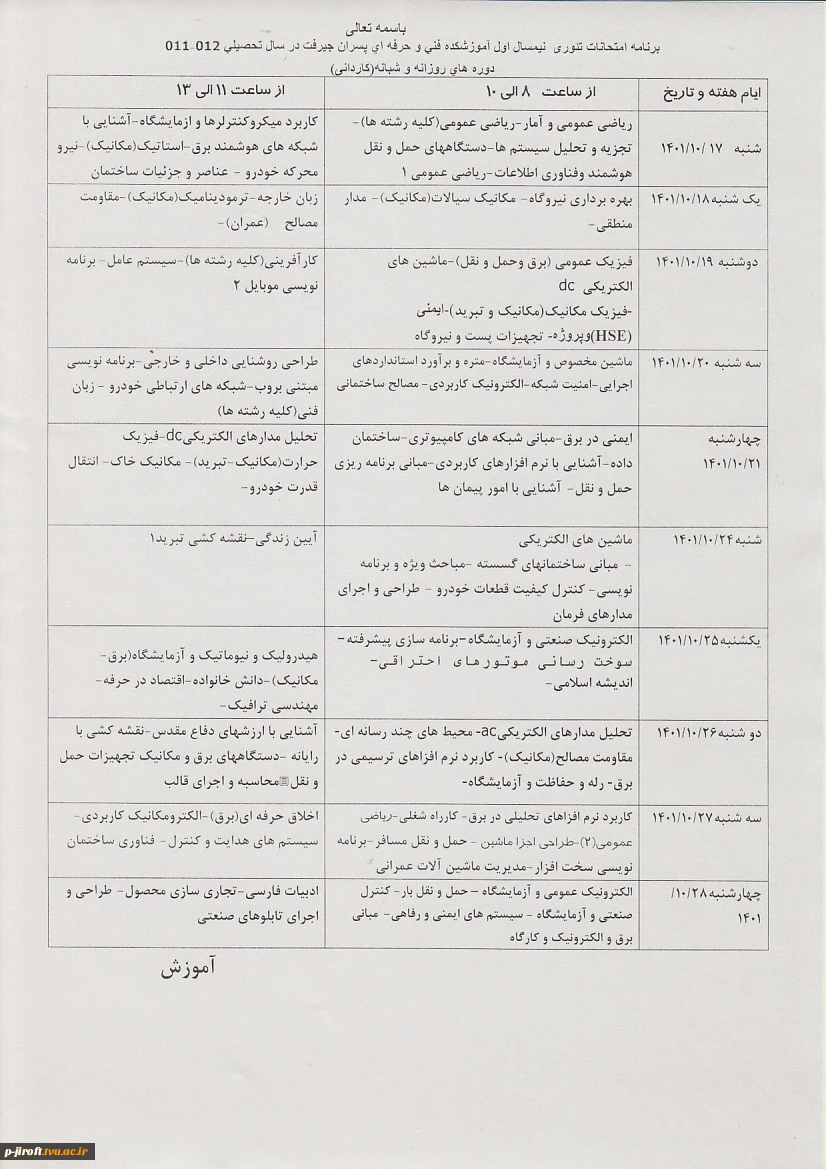 باسمه تعالی
برنامه امتحانات تئوری نیمسال اول آموزشکده فني و حرفه اي پسران جیرفت در سال تحصیلي 012-011
دوره هاي روزانه و شبانه(کاردانی)
ایام هفته و تاریخ
از ساعت ۸ الی ۱۰
از ساعت ۱۱ الی ۱۳
شنبه ۱۷ /۱۴۰۱/۱۰
ریاضی عمومی و آمار-ریاضی عمومی(کلیه رشته ها)-
تجزیه و تحلیل سیستم ها-دستگاههای حمل و نقل
هوشمند وفناوری اطلاعات-ریاضی عمومی ۱
کاربرد میکروکنترلرها و ازمایشگاه-آشنایی با
شبکه های هوشمند برق-استاتیک(مکانیک)-نیرو
محرکه خودرو - عناصر و جزئیات ساختمان
یک شنبه۱۴۰۱/۱۰/۱۸
بهره برداری نیروگاه- مکانیک سیالات(مکانیک)- مدار
منطقی-
زبان خارجه-ترمودینامیک(مکانیک)-مقاومت
مصالح (عمران)-
دوشنبه ۱۴۰۱/۱۰/۱۹
فیزیک عمومی (برق وحمل و نقل)-ماشین های
الکتریکی dc
-فیزیک مکانیک(مکانیک و تبرید)-ایمنی
(HSE)وپروژه- تجهیزات پست و نیروگاه
کارآفرینی(کلیه رشته ها)-سیستم عامل- برنامه
نویسی موبایل ۲
سه شنبه ۱۴۰۱/۱۰/۲۰
ماشین مخصوص و آزمایشگاه-متره و برآورد استانداردهای
اجرایی-امنیت شبکه-الکترونیک کاربردی- مصالح ساختمانی
طراحی روشنایی داخلی و خارجی-برنامه نویسی
مبتنی بروب-شبکه های ارتباطی خودرو - زبان
فنی(کلیه رشته ها)
چهارشنبه
۱۴۰۱/۱۰/۲۱
ایمنی در برق-مبانی شبکه های کامپیوتری-ساختمان
داده-آشنایی با نرم افزارهای کاربردی-مبانی برنامه ریزی
حمل و نقل- آشنایی با امور پیمان ها
تحلیل مدارهای الکتریکیdc-فیزیک
حرارت(مکانیک-تبرید)- مکانیک خاک- انتقال
قدرت خودرو-
شنبه۱۴۰۱/۱۰/۲۴
ماشین های الکتریکی
- مبانی ساختمانهای گسسته -مباحث ویژه و برنامه
نویسی- کنترل کیفیت قطعات خودرو - طراحی و اجرای
مدارهای فرمان
آیین زندگی-نقشه کشی تبرید۱
یکشنبه۱۴۰۱/۱۰/۲۵
الکترونیک صنعتی و آزمایشگاه-برنامه سازی پیشرفته-
سوخت رسانی موتورهای احتراقی-
اندیشه اسلامی-
هیدرولیک و نیوماتیک و آزمایشگاه(برق-
مکانیک)-دانش خانواده-اقتصاد در حرفه-
مهندسی ترافیک-
دو شنبه۱۴۰۱/۱۰/۲۶
تحلیل مدارهای الکتریکیac- محیط های چند رسانه ای-
مقاومت مصالح(مکانیک)- کاربرد نرم افزاهای ترسیمی در
برق- رله و حفاظت و آزمایشگاه-
آشنایی با ارزشهای دفاع مقدس-نقشه کشی با
رایانه -دستگاههای برق و مکانیک تجهیزات حمل
و نقل محاسبه و اجرای قالب
سه شنبه۱۴۰۱/۱۰/۲۷
کاربرد نرم افزاهای تحلیلی در برق- کارراه شغلی-ریاضی
عمومی(۲)-طراحی اجزا ماشین - حمل و نقل مسافر-برنامه
نویسی سخت افزار-مدیریت ماشین آلات عمرانی
اخلاق حرفه ای(برق)-الکترومکانیک کاربردی-
سیستم های هدایت و کنترل- فناوری ساختمان
چهارشنبه۱۰/۲۸/
۱۴۰۱
الکترونیک عمومی و آزمایشگاه - حمل و نقل بار- کنترل
صنعتی و آزمایشگاه - سیستم های ایمنی و رفاهی- مبانی
برق و الکترونیک و کارگاه
ادبیات فارسی-تجاری سازی محصول- طراحی و
اجرای تابلوهای صنعتی
آموزش
p-jiroft.tvu.ac.ir